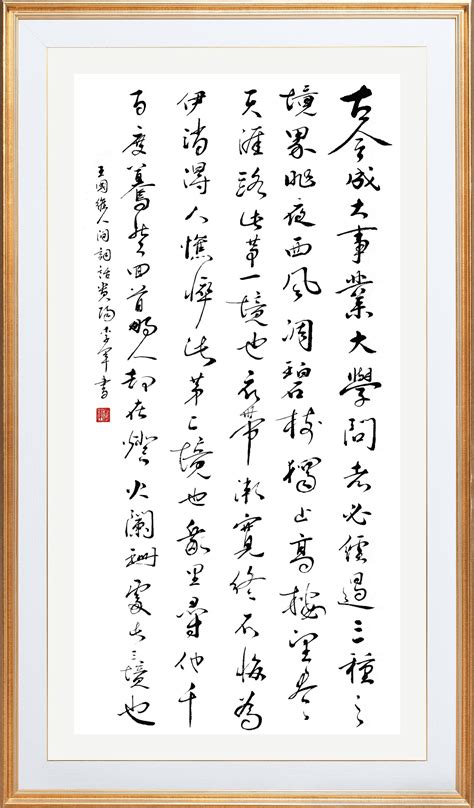 古今成大事業大學問者必經過三種之
境界昨夜西風凋碧樹獨上高樓望尽
天涯路此第一境也衣帶漸寬終不悔為
伊消得人憔悴此第二境也眾里尋他千
百度驀然回首那人却在燈火闌珊處此三境也
王國維人间詞話贵陽李军書